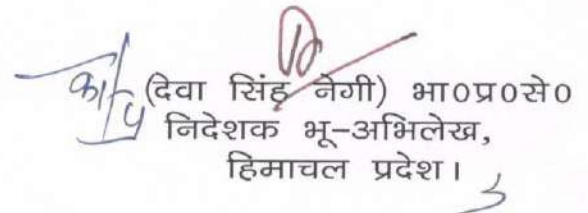 (देवा सिंह नेगी) भा०प्र०से०
निदेशक भू-अभिलेख,
हिमाचल प्रदेश।